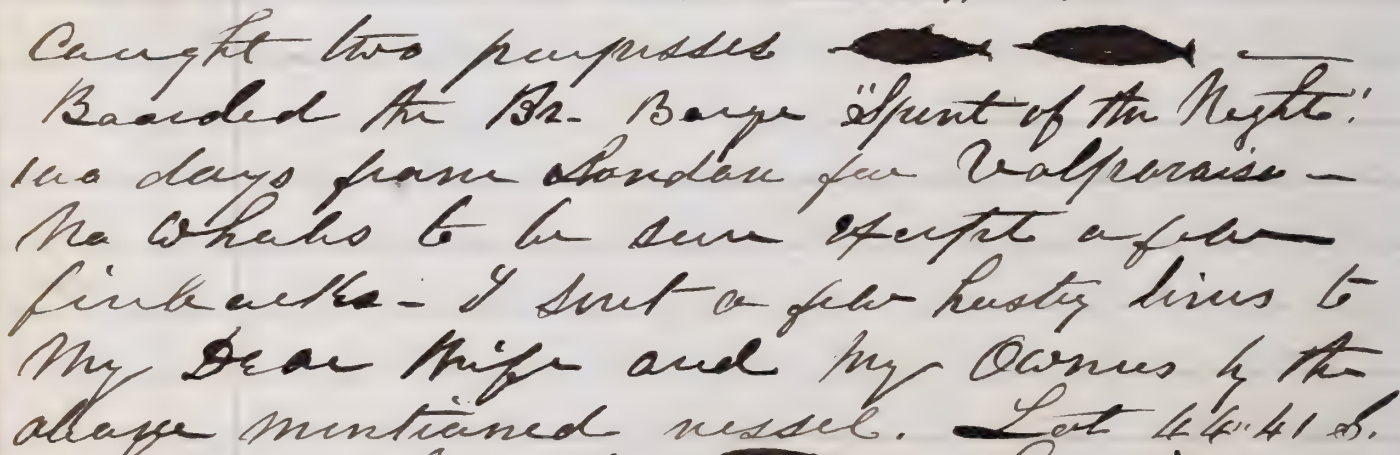 Caught two purpisses —
Boarded the Br. Barge "Spirit of the Night".
100 days from London for Valparaiso —
No Whales to be seen except a few
finbacks - I sent a few hasty lines to
My Dear Wife and My Owners by the
above mentioned vessel. Lat 44"41 S.